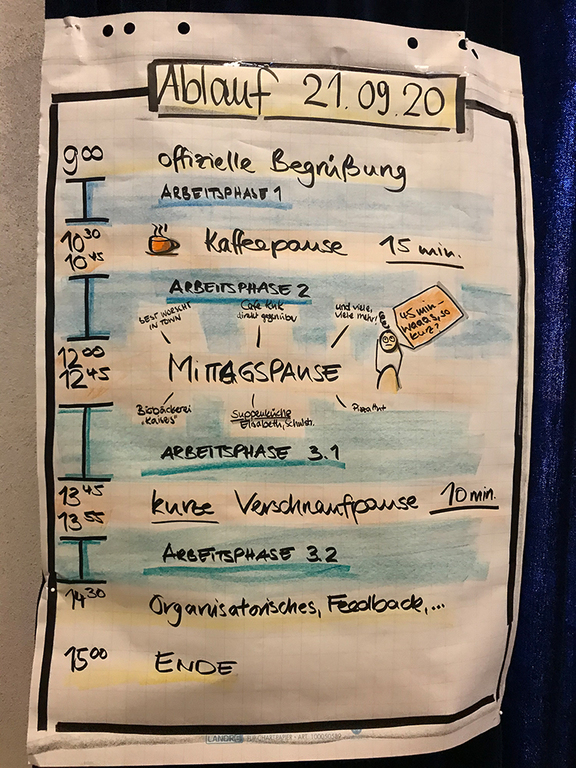 Ablauf 21.09.20
9⁰⁰ offizielle Begrüßung
ARBEITSPHASE 1
10³⁰
10⁴⁵ Kaffeepause 15 min.
ARBEITSPHASE 2
BEST WORSCHT IN TOWN
direkt gegenüber
und viele, viele mehr!
45 min-
waaas, so
kurz?
12⁰⁰
12⁴⁵ MITTAGSPAUSE
Biobäckerei
Suppenküche
Pizza Hut
ARBEITSPHASE 3.1
13⁴⁵
13⁵⁵ kurze Verschnaufpause 10 min.
ARBEITSPHASE 3.2
14³⁰ Organisatorisches, Feedback,...
15⁰⁰ ENDE
LANDRÉ FLIPCHARTPAPIER · ART. 100050589